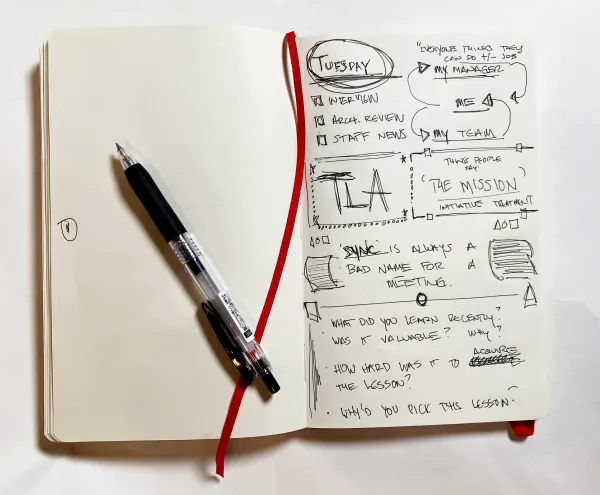 TUESDAY
INTERVIEW
ARCH. REVIEW
STAFF NEWS
"EVERYONE THINKS THEY
CAN DO +/- JOB"
MY MANAGER
ME
MY TEAM
TLA
THINGS PEOPLE
SAY:
"THE MISSION"
INITIATIVE TREATMENT
"SYNC" IS ALWAYS A
BAD NAME FOR A
MEETING.
· WHAT DID YOU LEARN RECENTLY?
WAS IT VALUABLE? WHY?
· HOW HARD WAS IT TO ACQUIRE
THE LESSON?
· WHY'D YOU PICK THIS LESSON?